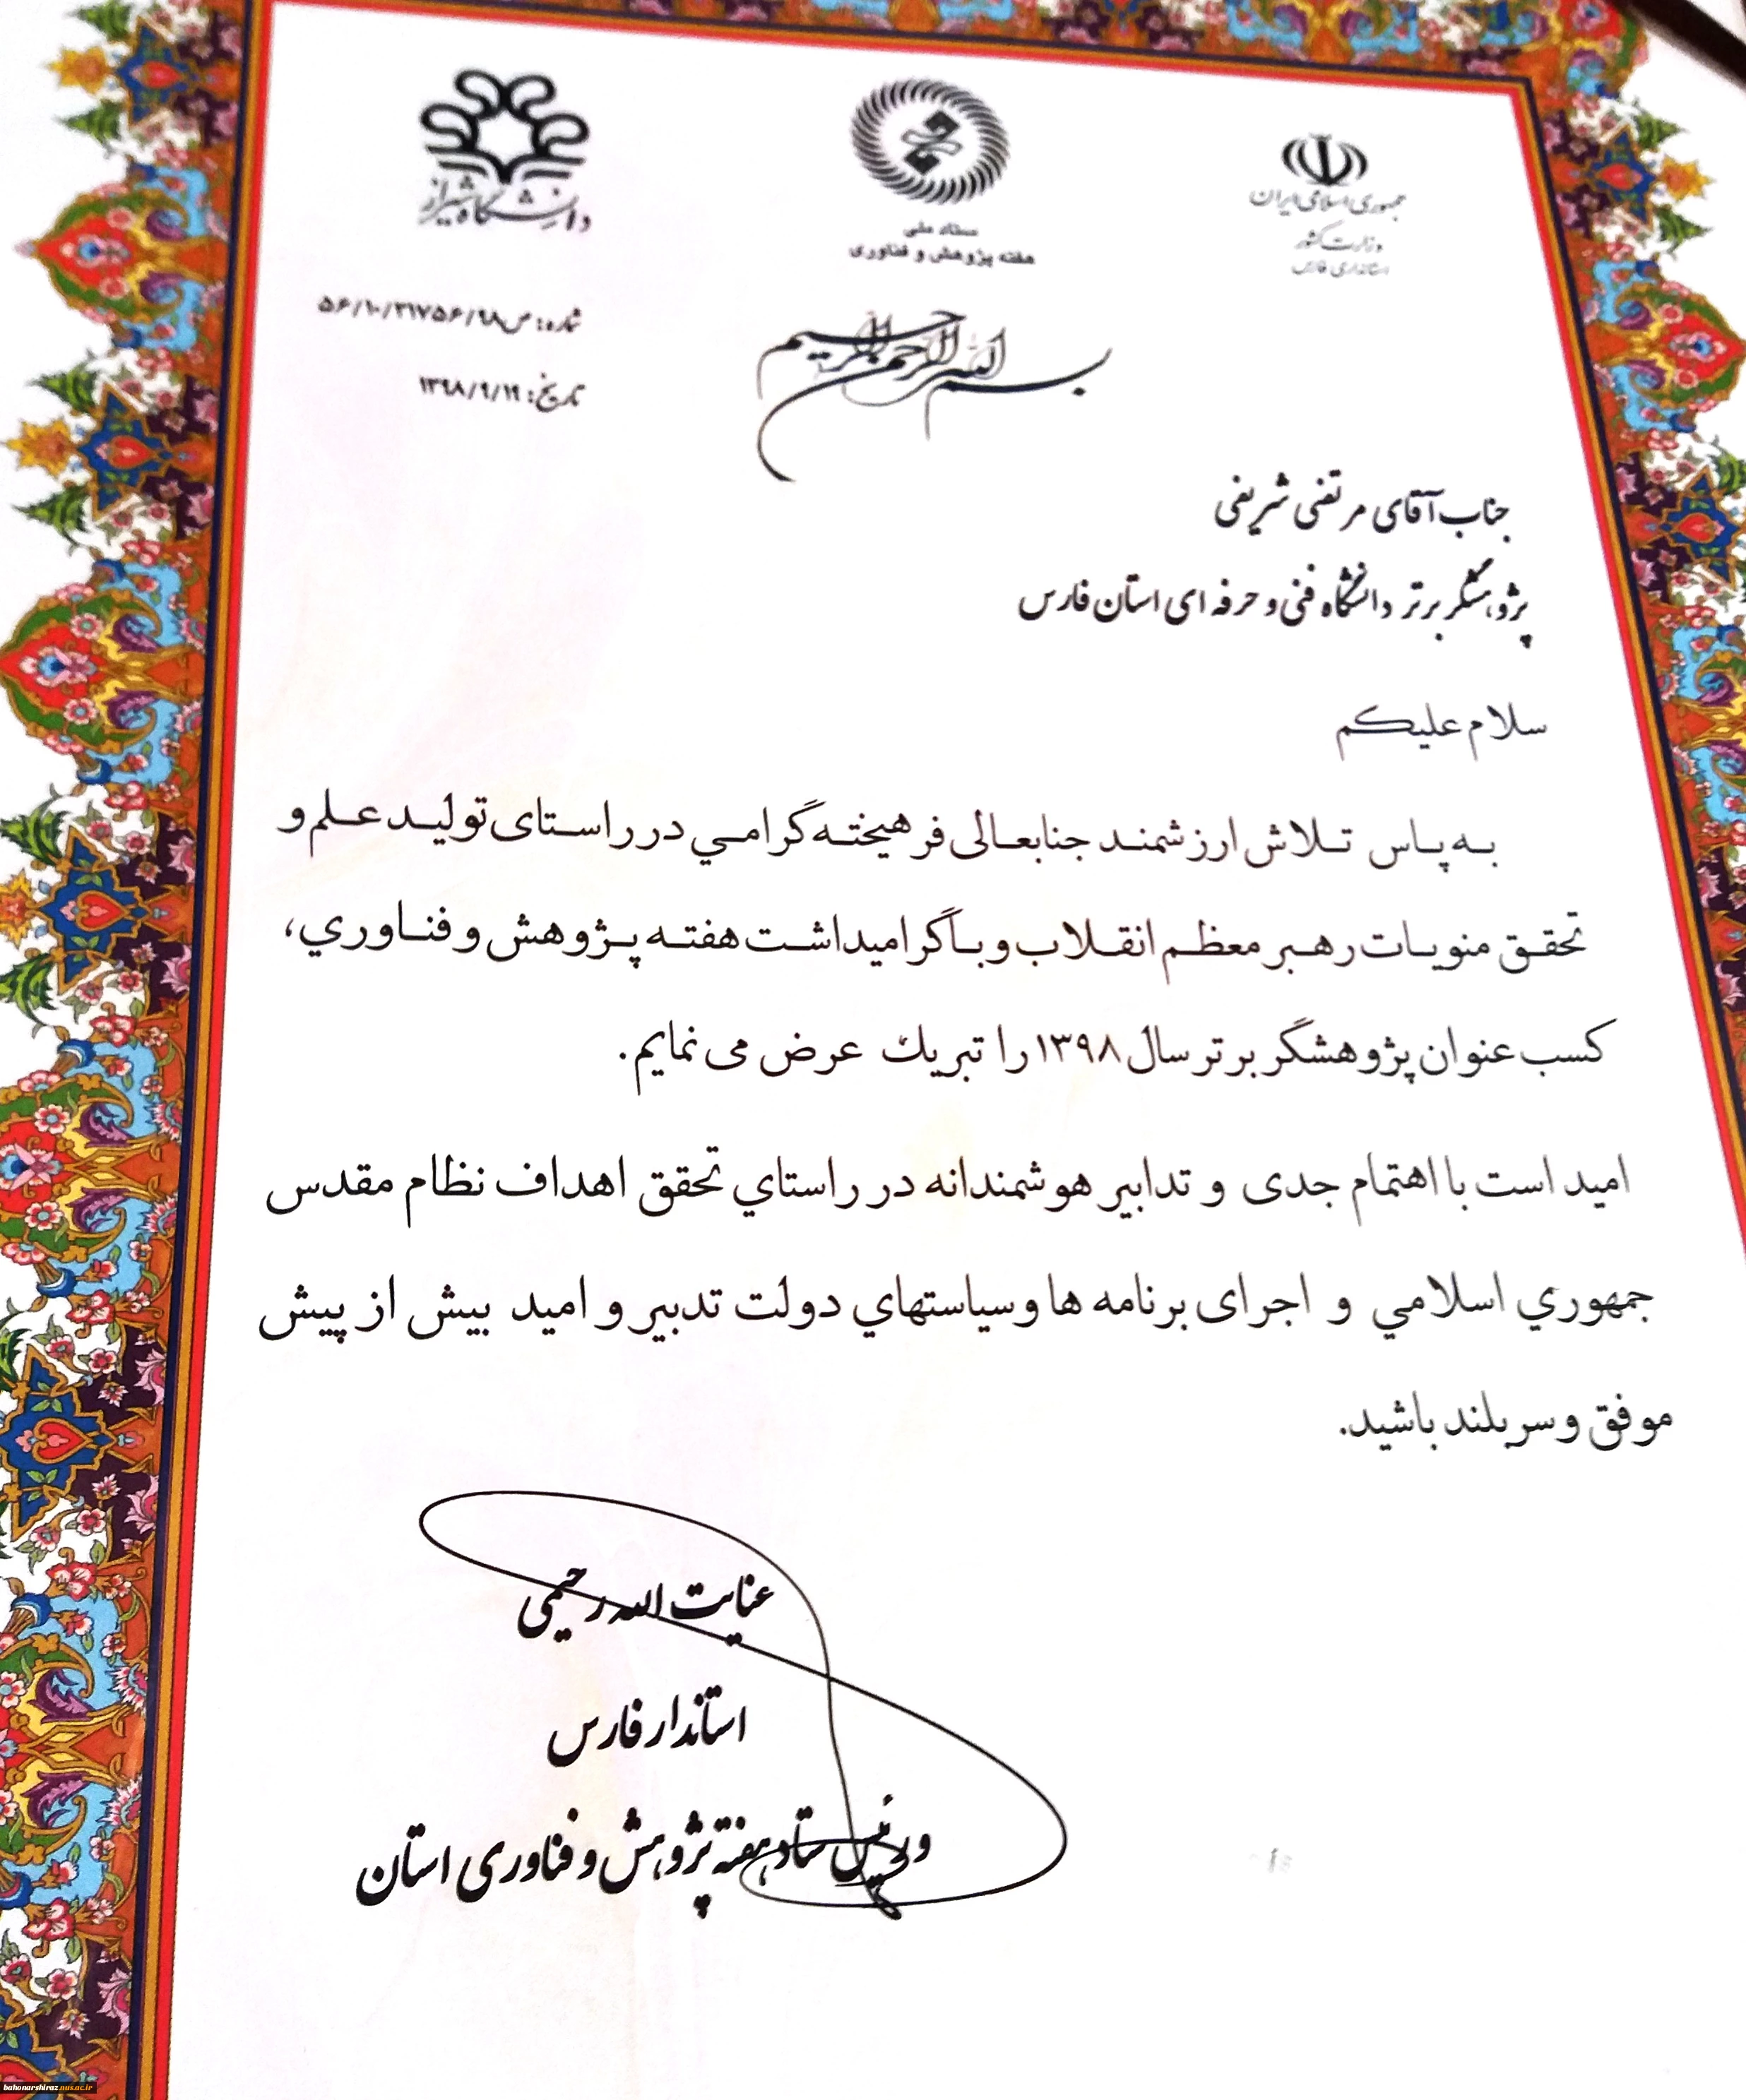 جمهوری اسلامی ایران
وزارت کشور
استانداری فارس
ستاد ملی
هفته پژوهش و فناوری
دانشگاه شیراز
شماره: ص۵۶/۱۰/۳۱۷۵۶/۹۸
تاریخ: ۱۳۹۸/۹/۱۹
بسم الله الرحمن الرحیم
جناب آقای مرتضی شریفی
پژوهشگر برتر دانشگاه فنی و حرفه ای استان فارس
سلام علیکم
به پاس تلاش ارزشمند جنابعالی فرهیخته گرامي در راستای تولید علم و
تحقق منویات رهبر معظم انقلاب و با گرامیداشت هفته پژوهش و فناوري،
کسب عنوان پژوهشگر برتر سال ۱۳۹۸ را تبریك عرض می نمایم.
امید است با اهتمام جدی و تدابیر هوشمندانه در راستاي تحقق اهداف نظام مقدس
جمهوري اسلامي و اجرای برنامه ها و سیاستهاي دولت تدبیر و امید بیش از پیش
موفق و سربلند باشید.
عنایت الله رحیمی
استاندار فارس
و رئیس ستاد هفته پژوهش و فناوری استان
bahonarshiraz.nus.ac.ir